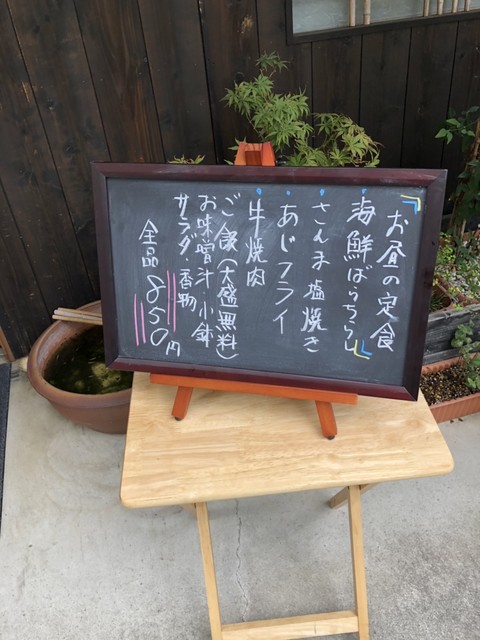 お昼の定食
・海鮮ばらちらし
・さんま塩焼き
・あじフライ
・牛焼肉
ご飯(大盛無料)
お味噌汁・小鉢
サラダ・香物
全品850円